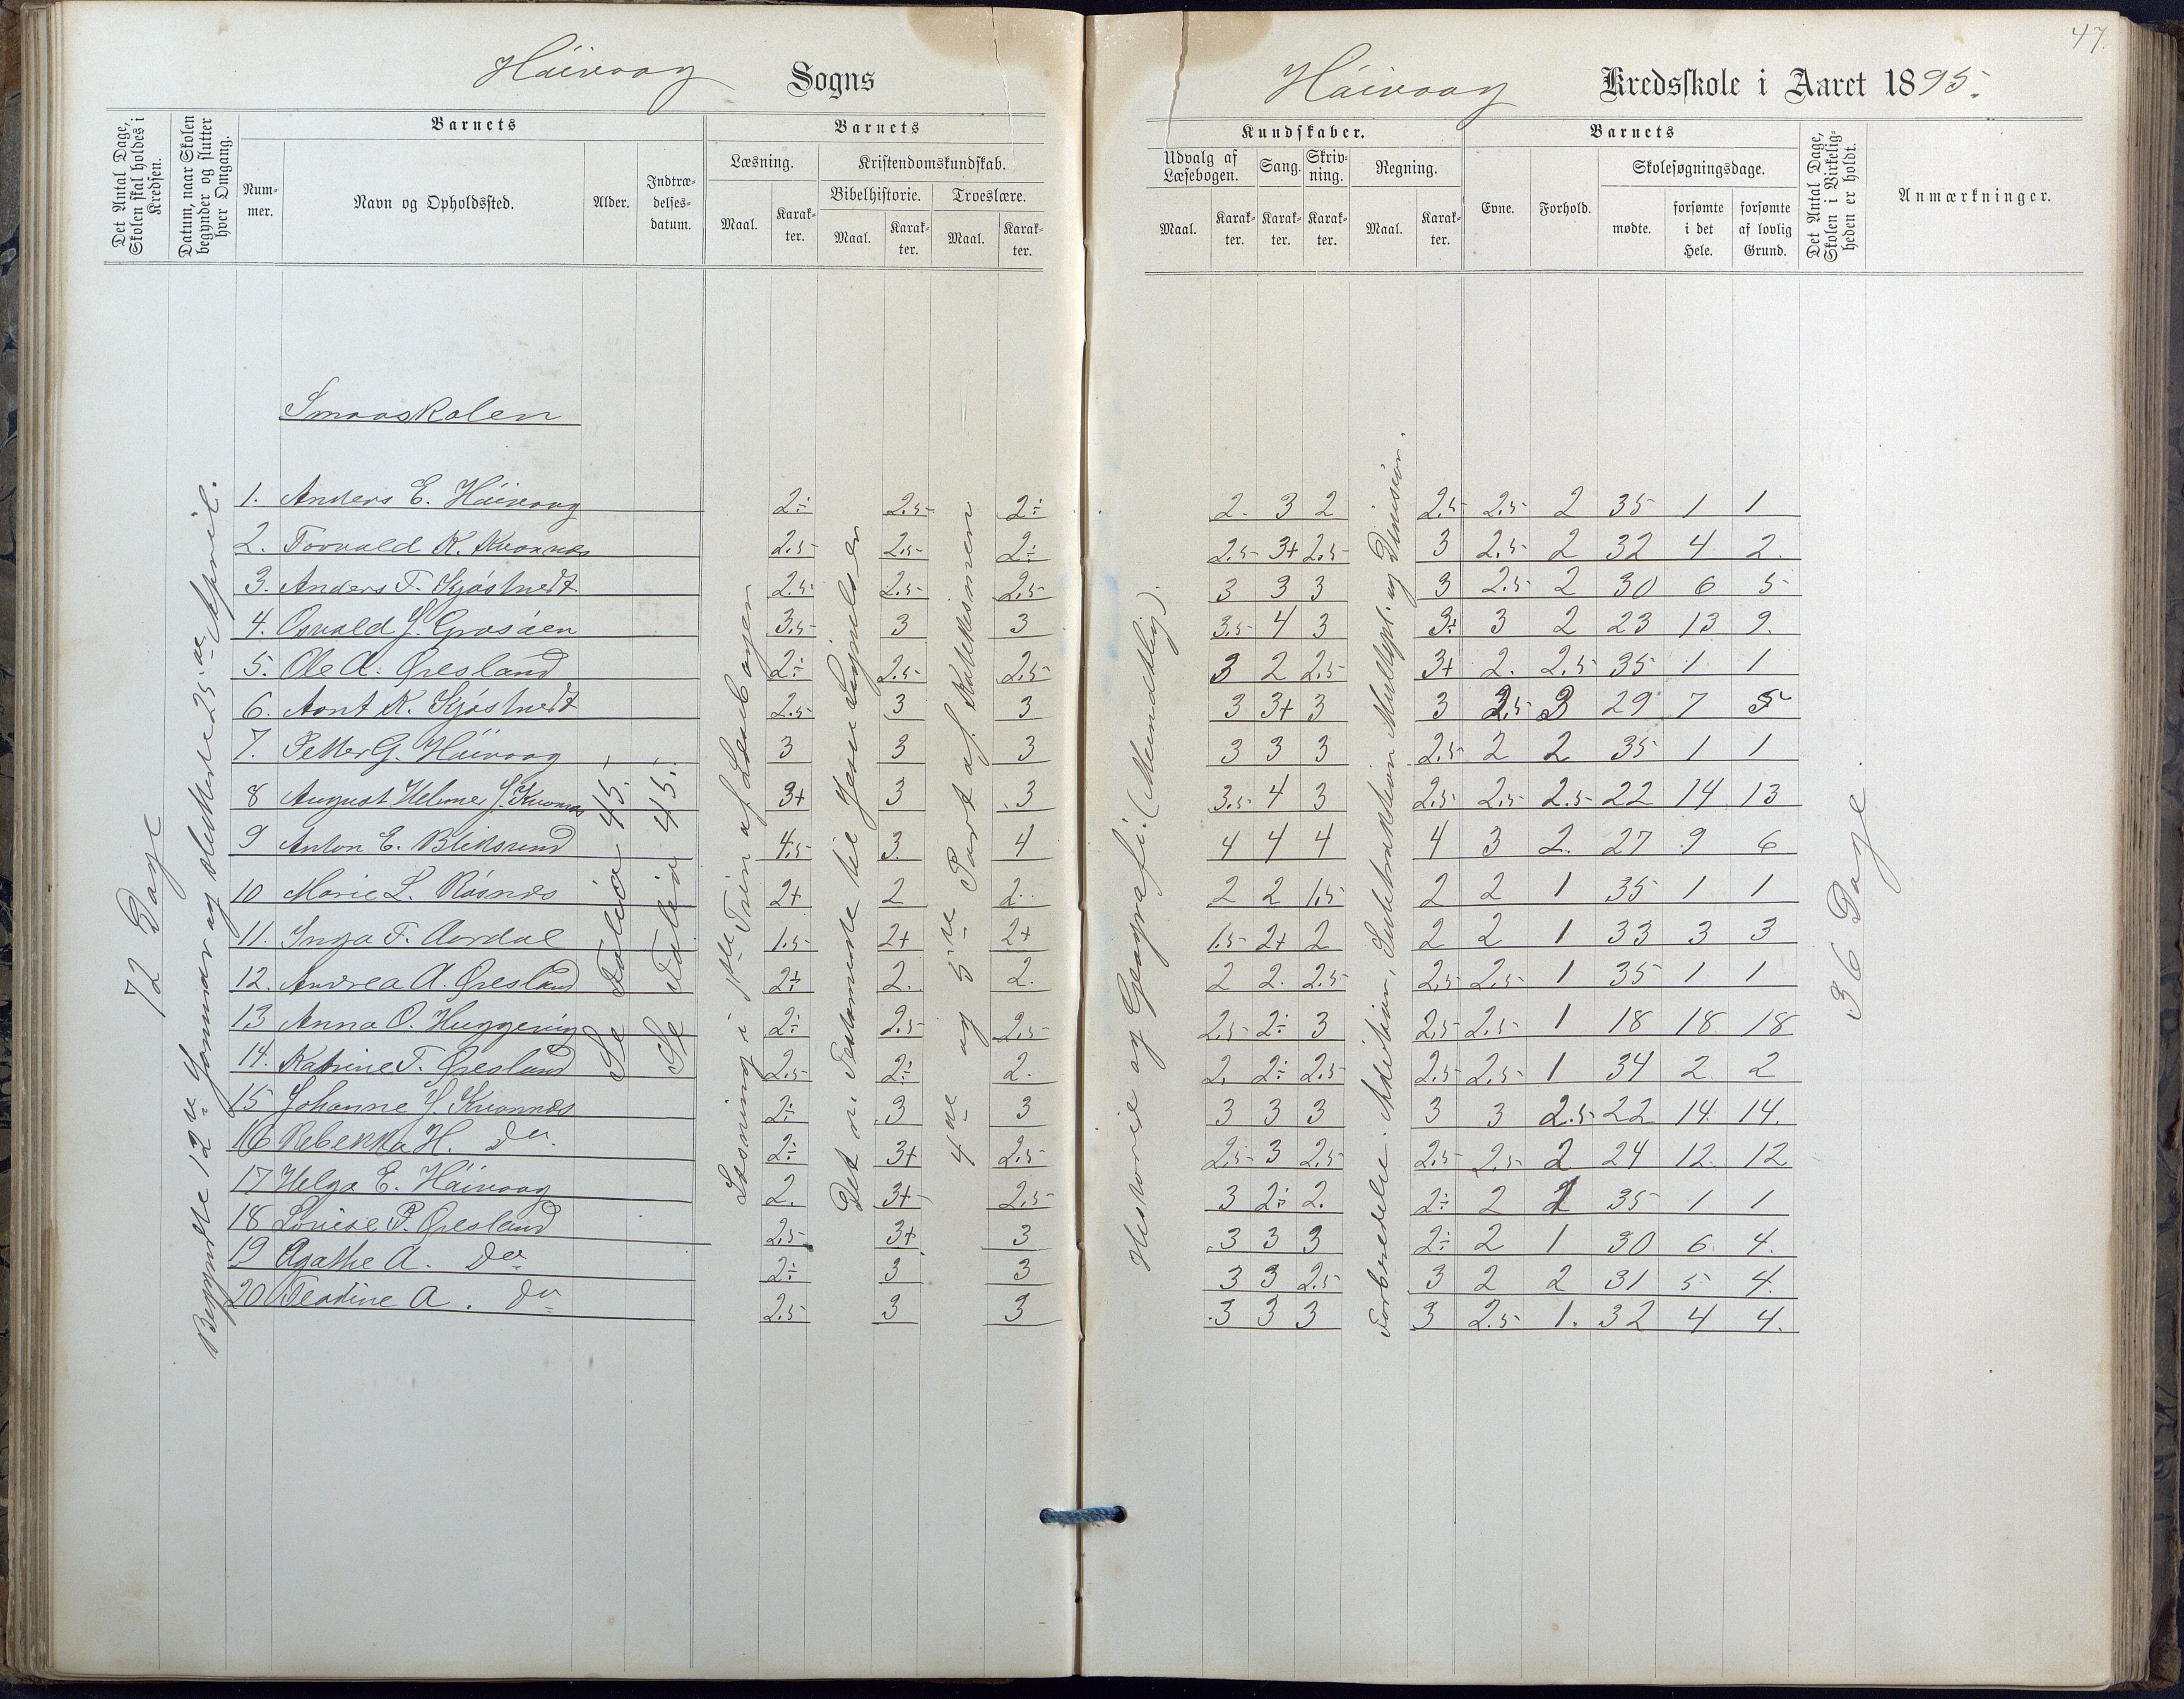 47.
Håivaag Sogns
Håivaag Kredsskole i Aaret 1895.
Det Antal Dage, Skolen skal holdes i Kredsen.
Datum, naar Skolen begynder og slutter hver Omgang.
Barnets
Num-mer.
Navn og Opholdssted.
Alder.
Indtræ-delses-datum.
Barnets
Læsning.
Kristendomskundskab.
Bibelhistorie.
Troeslære.
Maal.
Karak-ter.
Maal.
Karak-ter.
Maal.
Karak-ter.
Kundskaber.
Udvalg af Læsebogen.
Sang.
Skriv-ning.
Regning.
Maal.
Karak-ter.
Karak-ter.
Karak-ter.
Maal.
Karak-ter.
Barnets
Evne.
Forhold.
Skolesøgningsdage.
mødte.
forsømte i det Hele.
forsømte af lovlig Grund.
Det Antal Dage, Skolen i Virkelig-heden er holdt.
Anmærkninger.
72 Dage
Begyndte 12te Januar og sluttede 25de April.
Smaaskolen
Se Folio 45.
Se Folio 45.
Læsning i 1ste Trin af Læsebogen
Det n. Testamente til Jesu Lignelser
4de og 5te Part af Katekismen
Historie og Geografi: (Mundtlig).
Forberedelse: Addition, Subtraktion Multipl. og Division.
36 Dage.
1. Anders E. Håivaag 2÷ 2.5 2÷ 2. 3 2 2.5 2.5 2 35 1 1
2. Torvald K. Kvannes 2.5 2.5 2÷ 2.5 3+ 2.5 3 2.5 2 32 4 2.
3. Anders T. Kjøstvedt 2.5 2.5 2.5 3 3 3 3 2.5 2 30 6 5
4. Osvald J. Grosåen 3.5 3 3 3.5 4 3 3÷ 3 2 23 13 9.
5. Ole A. Øresland 2÷ 2.5 2.5 3 2 2.5 3+ 2. 2.5 35 1 1
6. Aant K. Kjøstvedt 2.5 3 3 3 3+ 3 3 2.5 3 29 7 5
7. Petter G. Håivaag 3 3 3 3 3 3 2.5 2 2 35 1 1
8 August Helmer J. Kvannes 3+ 3 3 3.5 4 3 2.5 2.5 2.5 22 14 13
9 Anton E. Bliksund 4.5 3. 4 4 4 4 4 3 2. 27 9 6
10 Marie L. Røsnes 2+ 2 2. 2 2 1.5 2 2 1 35 1 1
11. Inga F. Aardal 1.5 2+ 2+ 1.5 2+ 2 2 2 1 33 3 3
12. Andrea A. Øresland 2÷ 2. 2. 2 2. 2.5 2.5 2.5 1 35 1 1
13 Anna O. Huggening 2÷ 2.5 2.5 2.5 2÷ 3 2.5 2.5 1 18 18 18
14. Katrine T. Øresland 2.5 2÷ 2. 2. 2÷ 2.5 2.5 2.5 1 34 2 2
15 Johanne J. Kvannes 2÷ 3 3 3 3 3 3 3 2.5 22 14 14.
16 Rebekka H. do. 2÷ 3+ 2.5 2.5 3 2.5 2.5 2.5 2 24 12 12
17 Helga E. Håivaag 2. 3+ 2.5 3 2÷ 2. 2÷ 2 1 35 1 1
18 Lovise P. Øresland 2.5 3+ 3 3 3 3 2÷ 2 1 30 6 4.
19 Agathe A. do 2÷ 3 3 3 3 2.5 3 2 2 31 5 4.
20 Teodine A. do 2.5 3 3 3 3 3 3 2.5 1. 32 4 4.